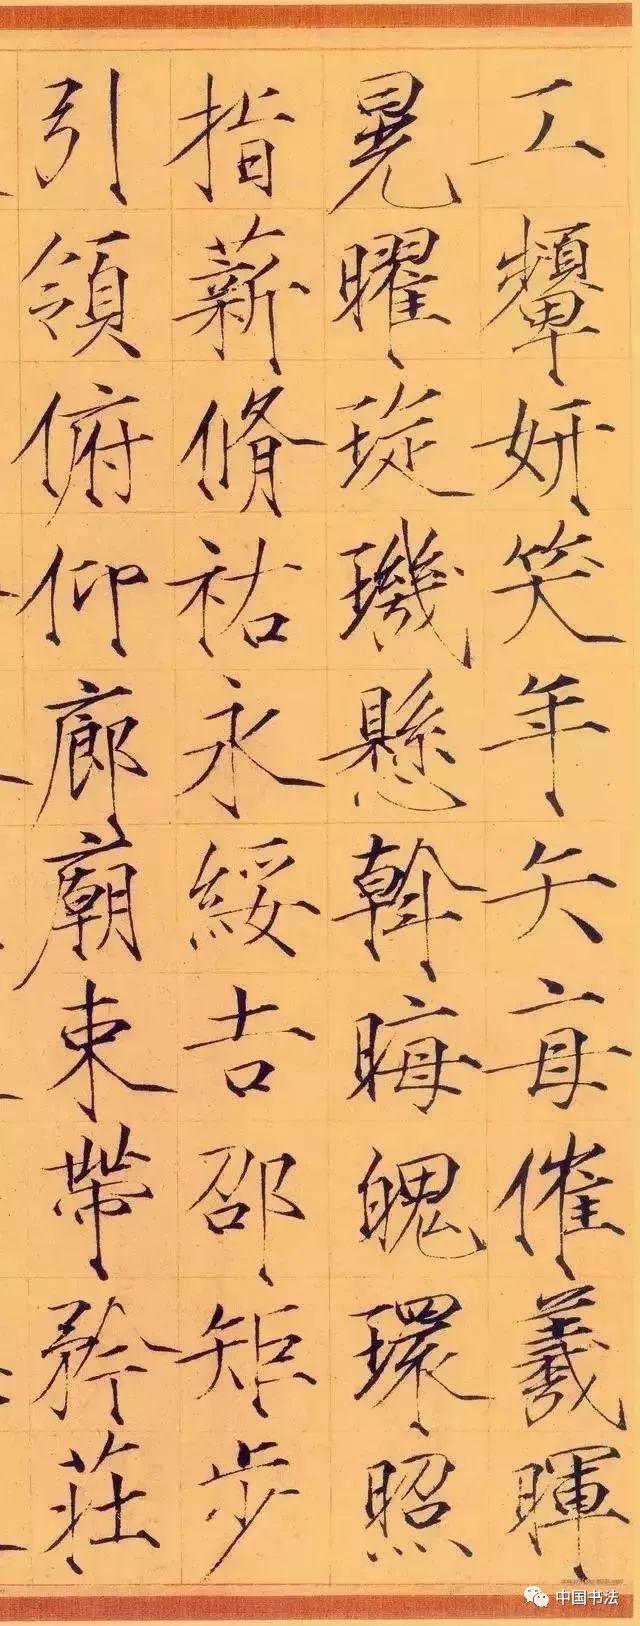 工顰妍笑年矢每催羲暉
晃曜琁璣懸斡晦魄環照
指薪脩祐永綏吉邵矩步
引領俯仰廊廟束帶矜莊
中国书法